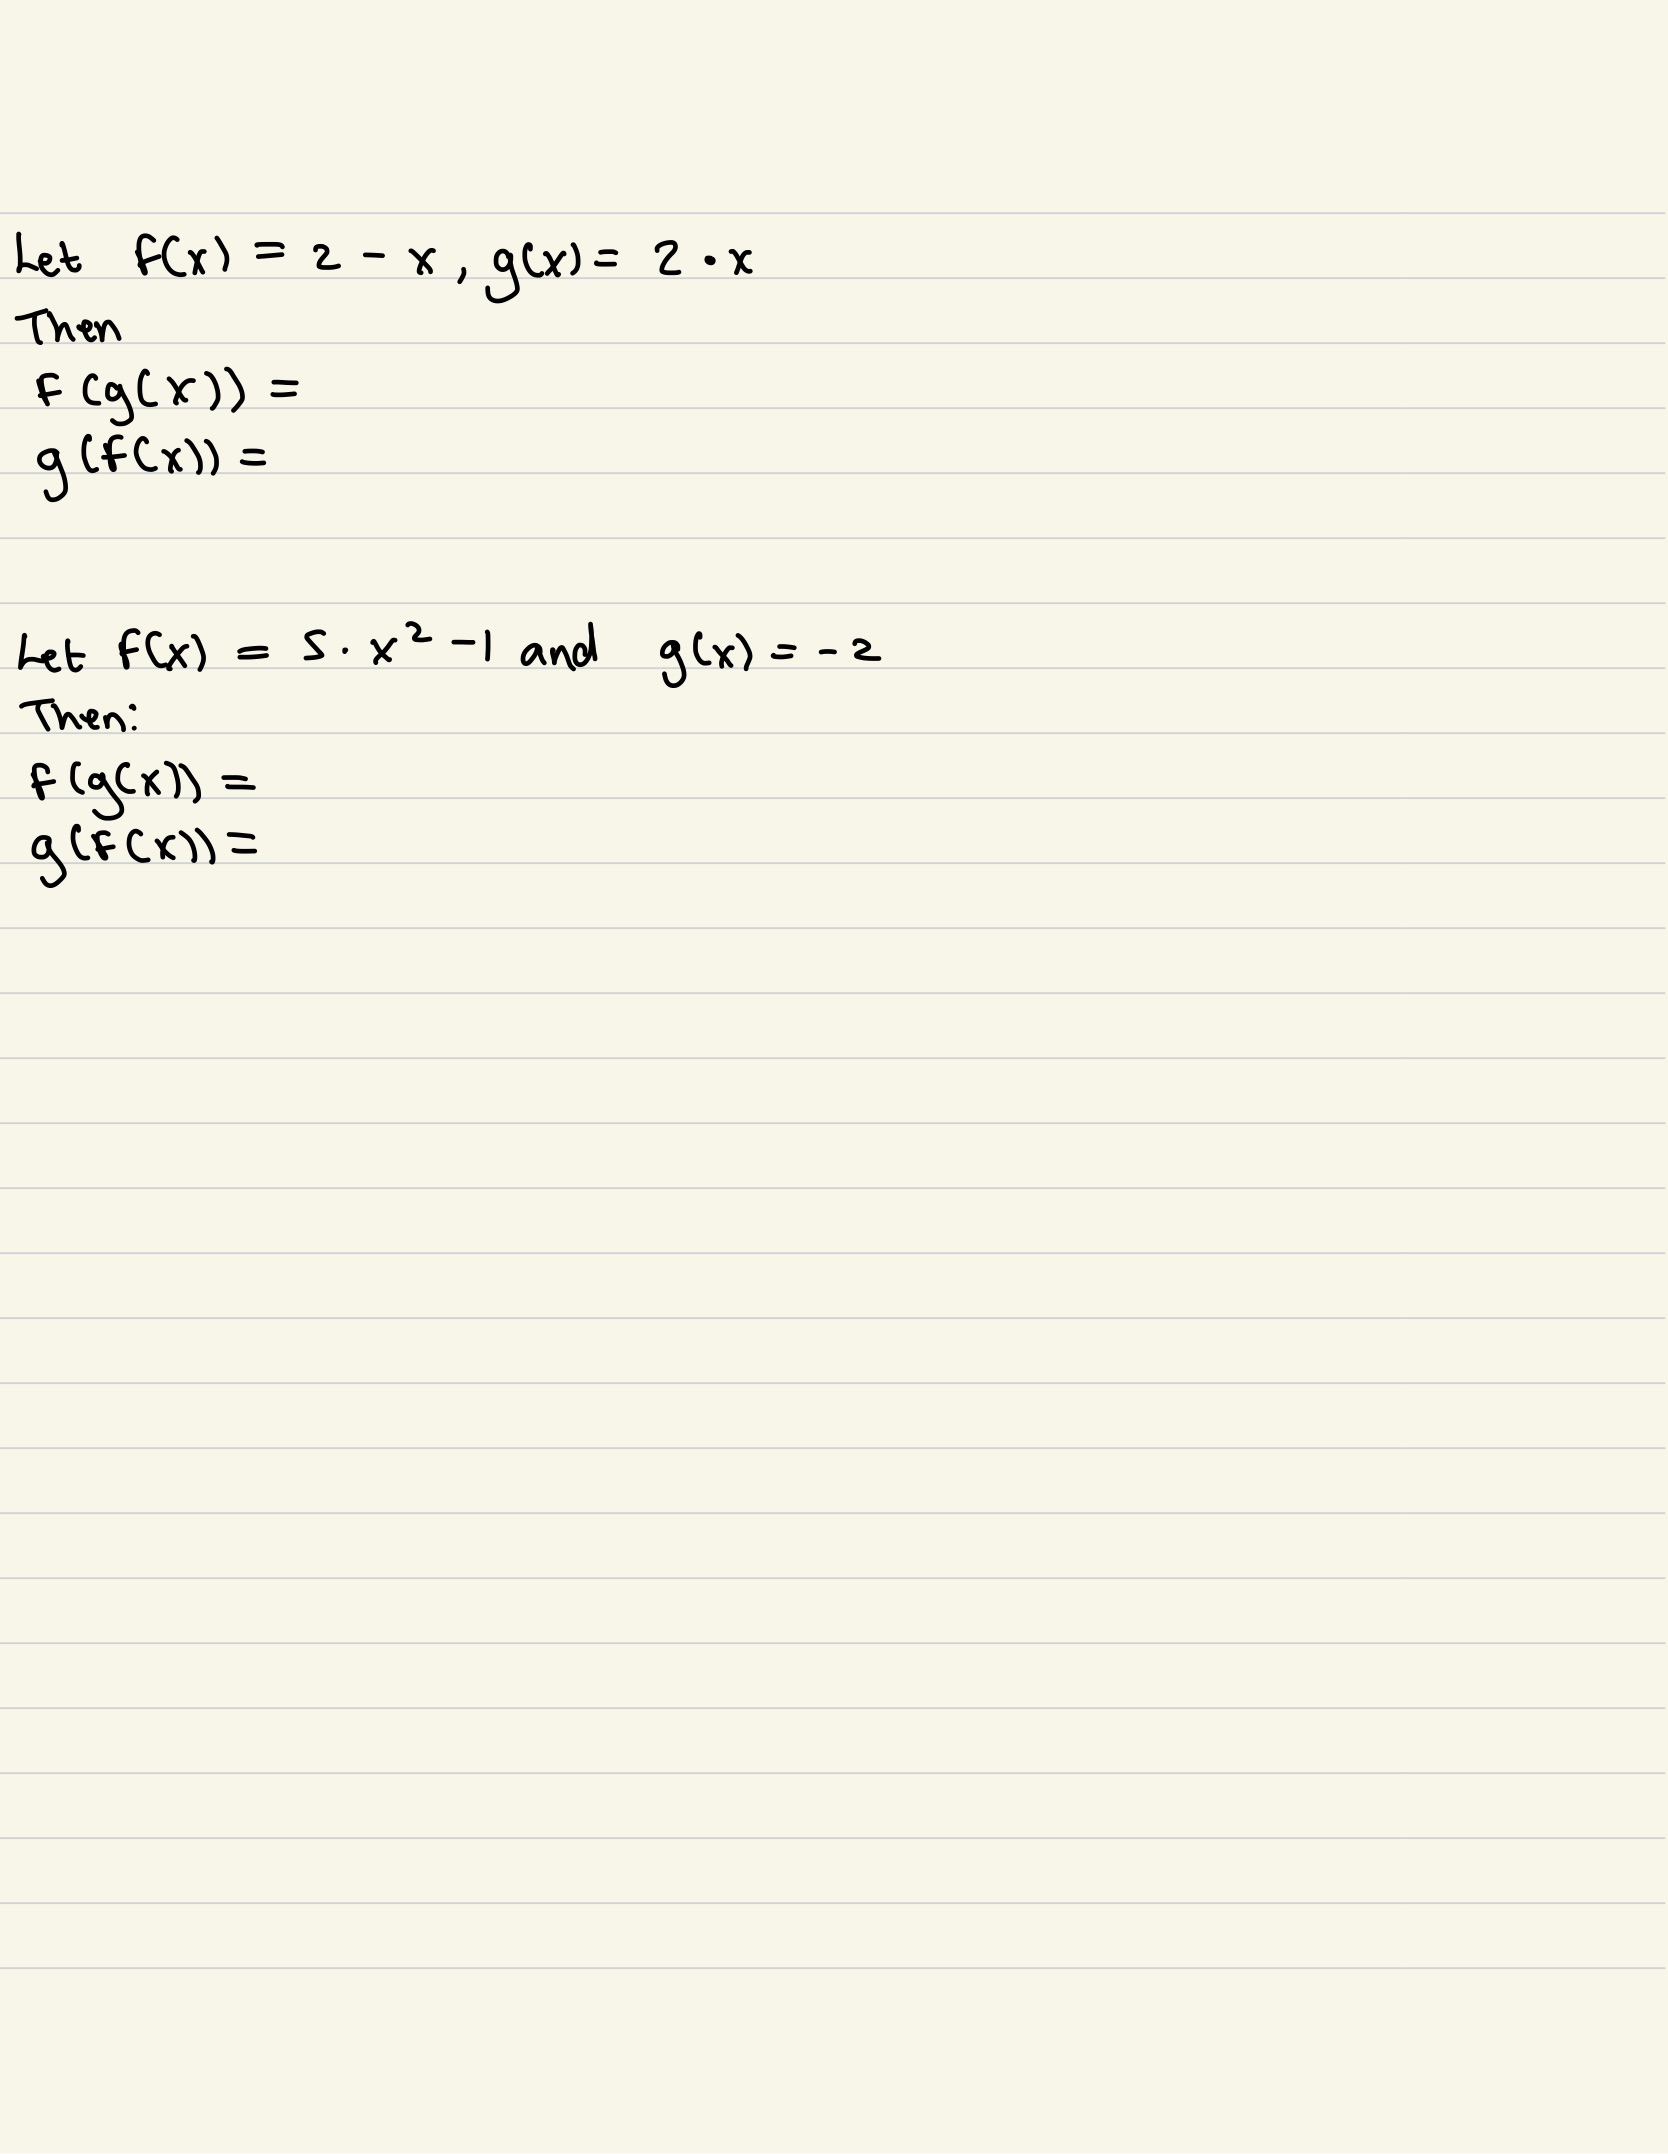 Let f(x) = 2 - x, g(x) = 2 · x
Then
f(g(x)) =
g(f(x)) =
Let f(x) = 5 · x² - 1 and g(x) = - 2
Then:
f(g(x)) =
g(f(x)) =